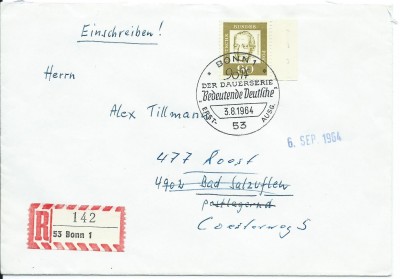 Einschreiben!
Herrn
Alex Tillmann
BONN 1
DER DAUERSERIE
"Bedeutende Deutsche"
ERST-
AUSG.
3.8.1964
53
6. SEP. 1964
477 Soest
4902 Bad Salzuflen
postlagernd
Coesterweg 5
R
142
53 Bonn 1